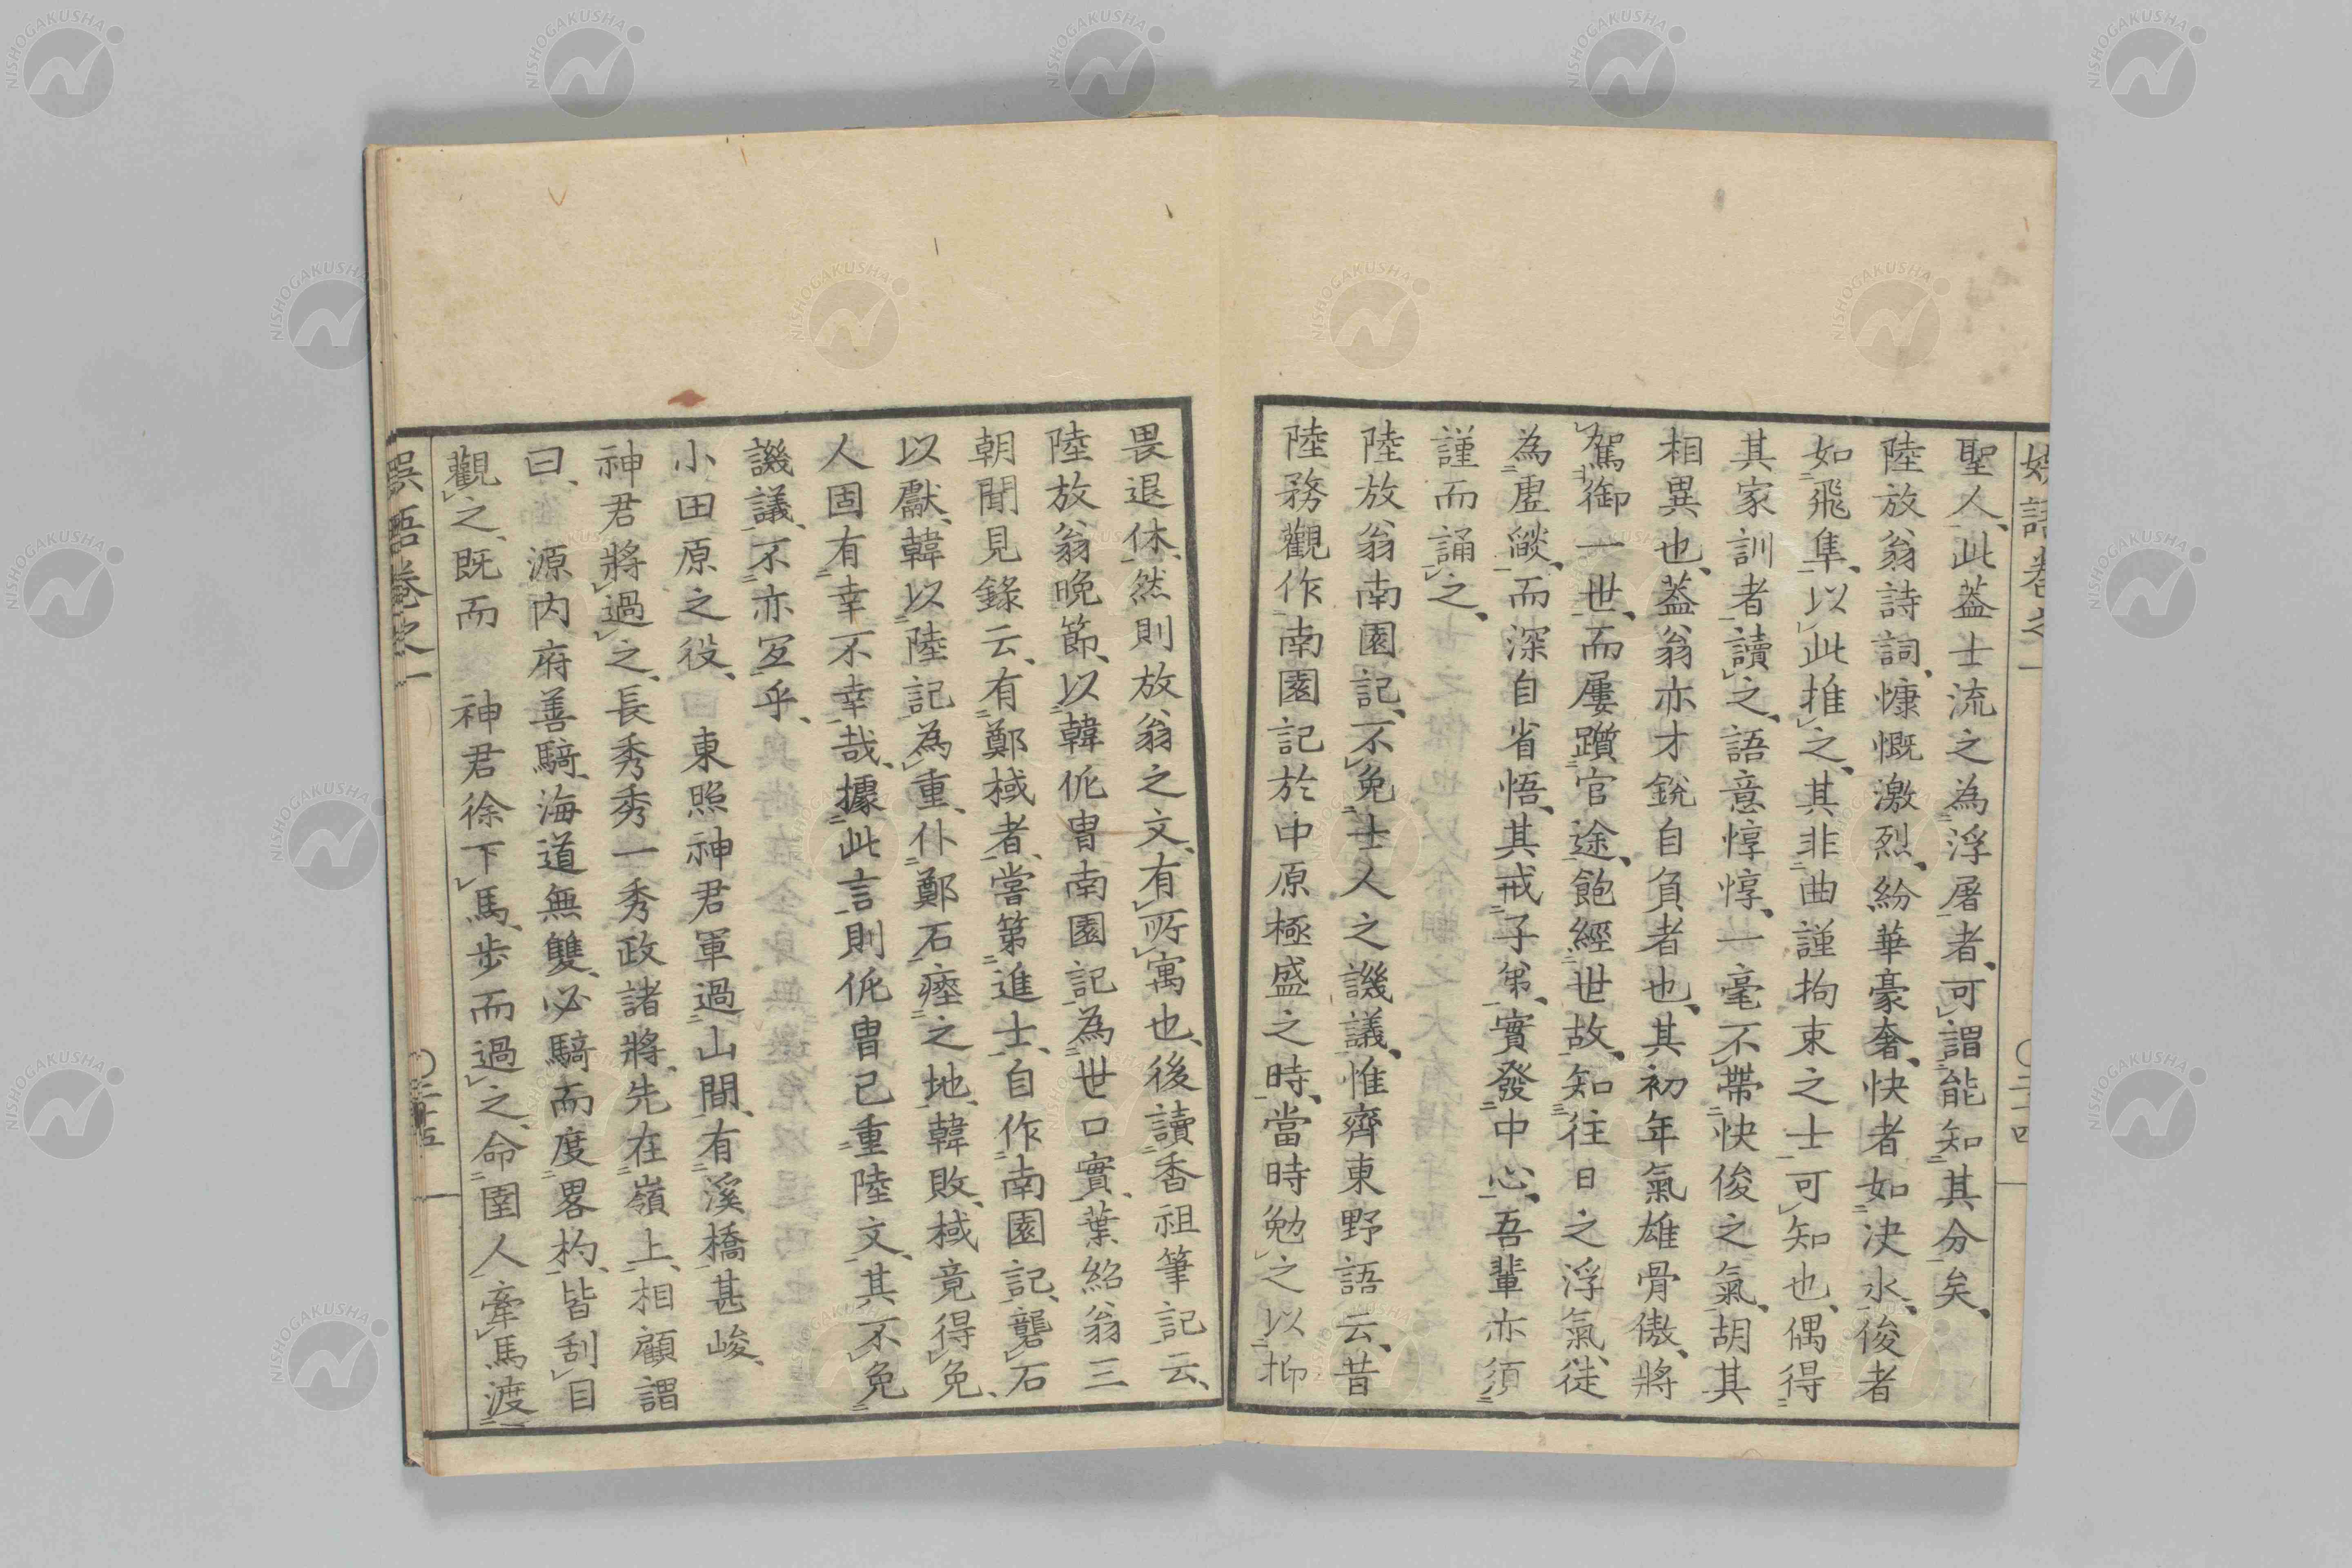 聖人、此葢士流之為浮屠者、可謂能知其分矣、
陸放翁詩詞、慷慨激烈、紛華豪奢、快者如决水、俊者
如飛隼、以此推之、其非曲謹拘束之士可知也、偶得
其家訓者讀之、語意惇惇、一毫不帶快俊之氣、胡其
相異也、葢翁亦才銳自負者也、其初年氣雄骨傲、將
駕御一世、而屢躓官途、飽經世故、知往日之浮氣、徒
為虗燄、而深自省悟、其戒子弟、實發中心、吾輩亦須
謹而誦之、
陸放翁南園記、不免士人之譏議、惟齊東野語云、昔
陸務觀作南園記於中原極盛之時、當時勉之以抑
畏退休、然則放翁之文、有所寓也、後讀香祖筆記云、
陸放翁晚節、以韓侂冑南園記為世口實、葉紹翁三
朝聞見錄云、有鄭棫者、嘗第進士、自作南園記、礱石
以獻、韓以陸記為重、仆鄭石瘞之地、韓敗、棫竟得免、
人固有幸不幸哉、據此言則侂冑已重陸文、其不免
譏議、不亦宜乎、
小田原之役、東照神君軍過山間、有溪橋甚峻、
神君將過之、長秀秀一秀政諸將、先在嶺上、相顧謂
曰、源内府善騎、海道無雙、必騎而度畧杓、皆刮目
觀之、既而神君徐下馬、步而過之、命圉人牽馬渡
語卷之一
二十四
語卷之一
二十五
NISHOGAKUSHA